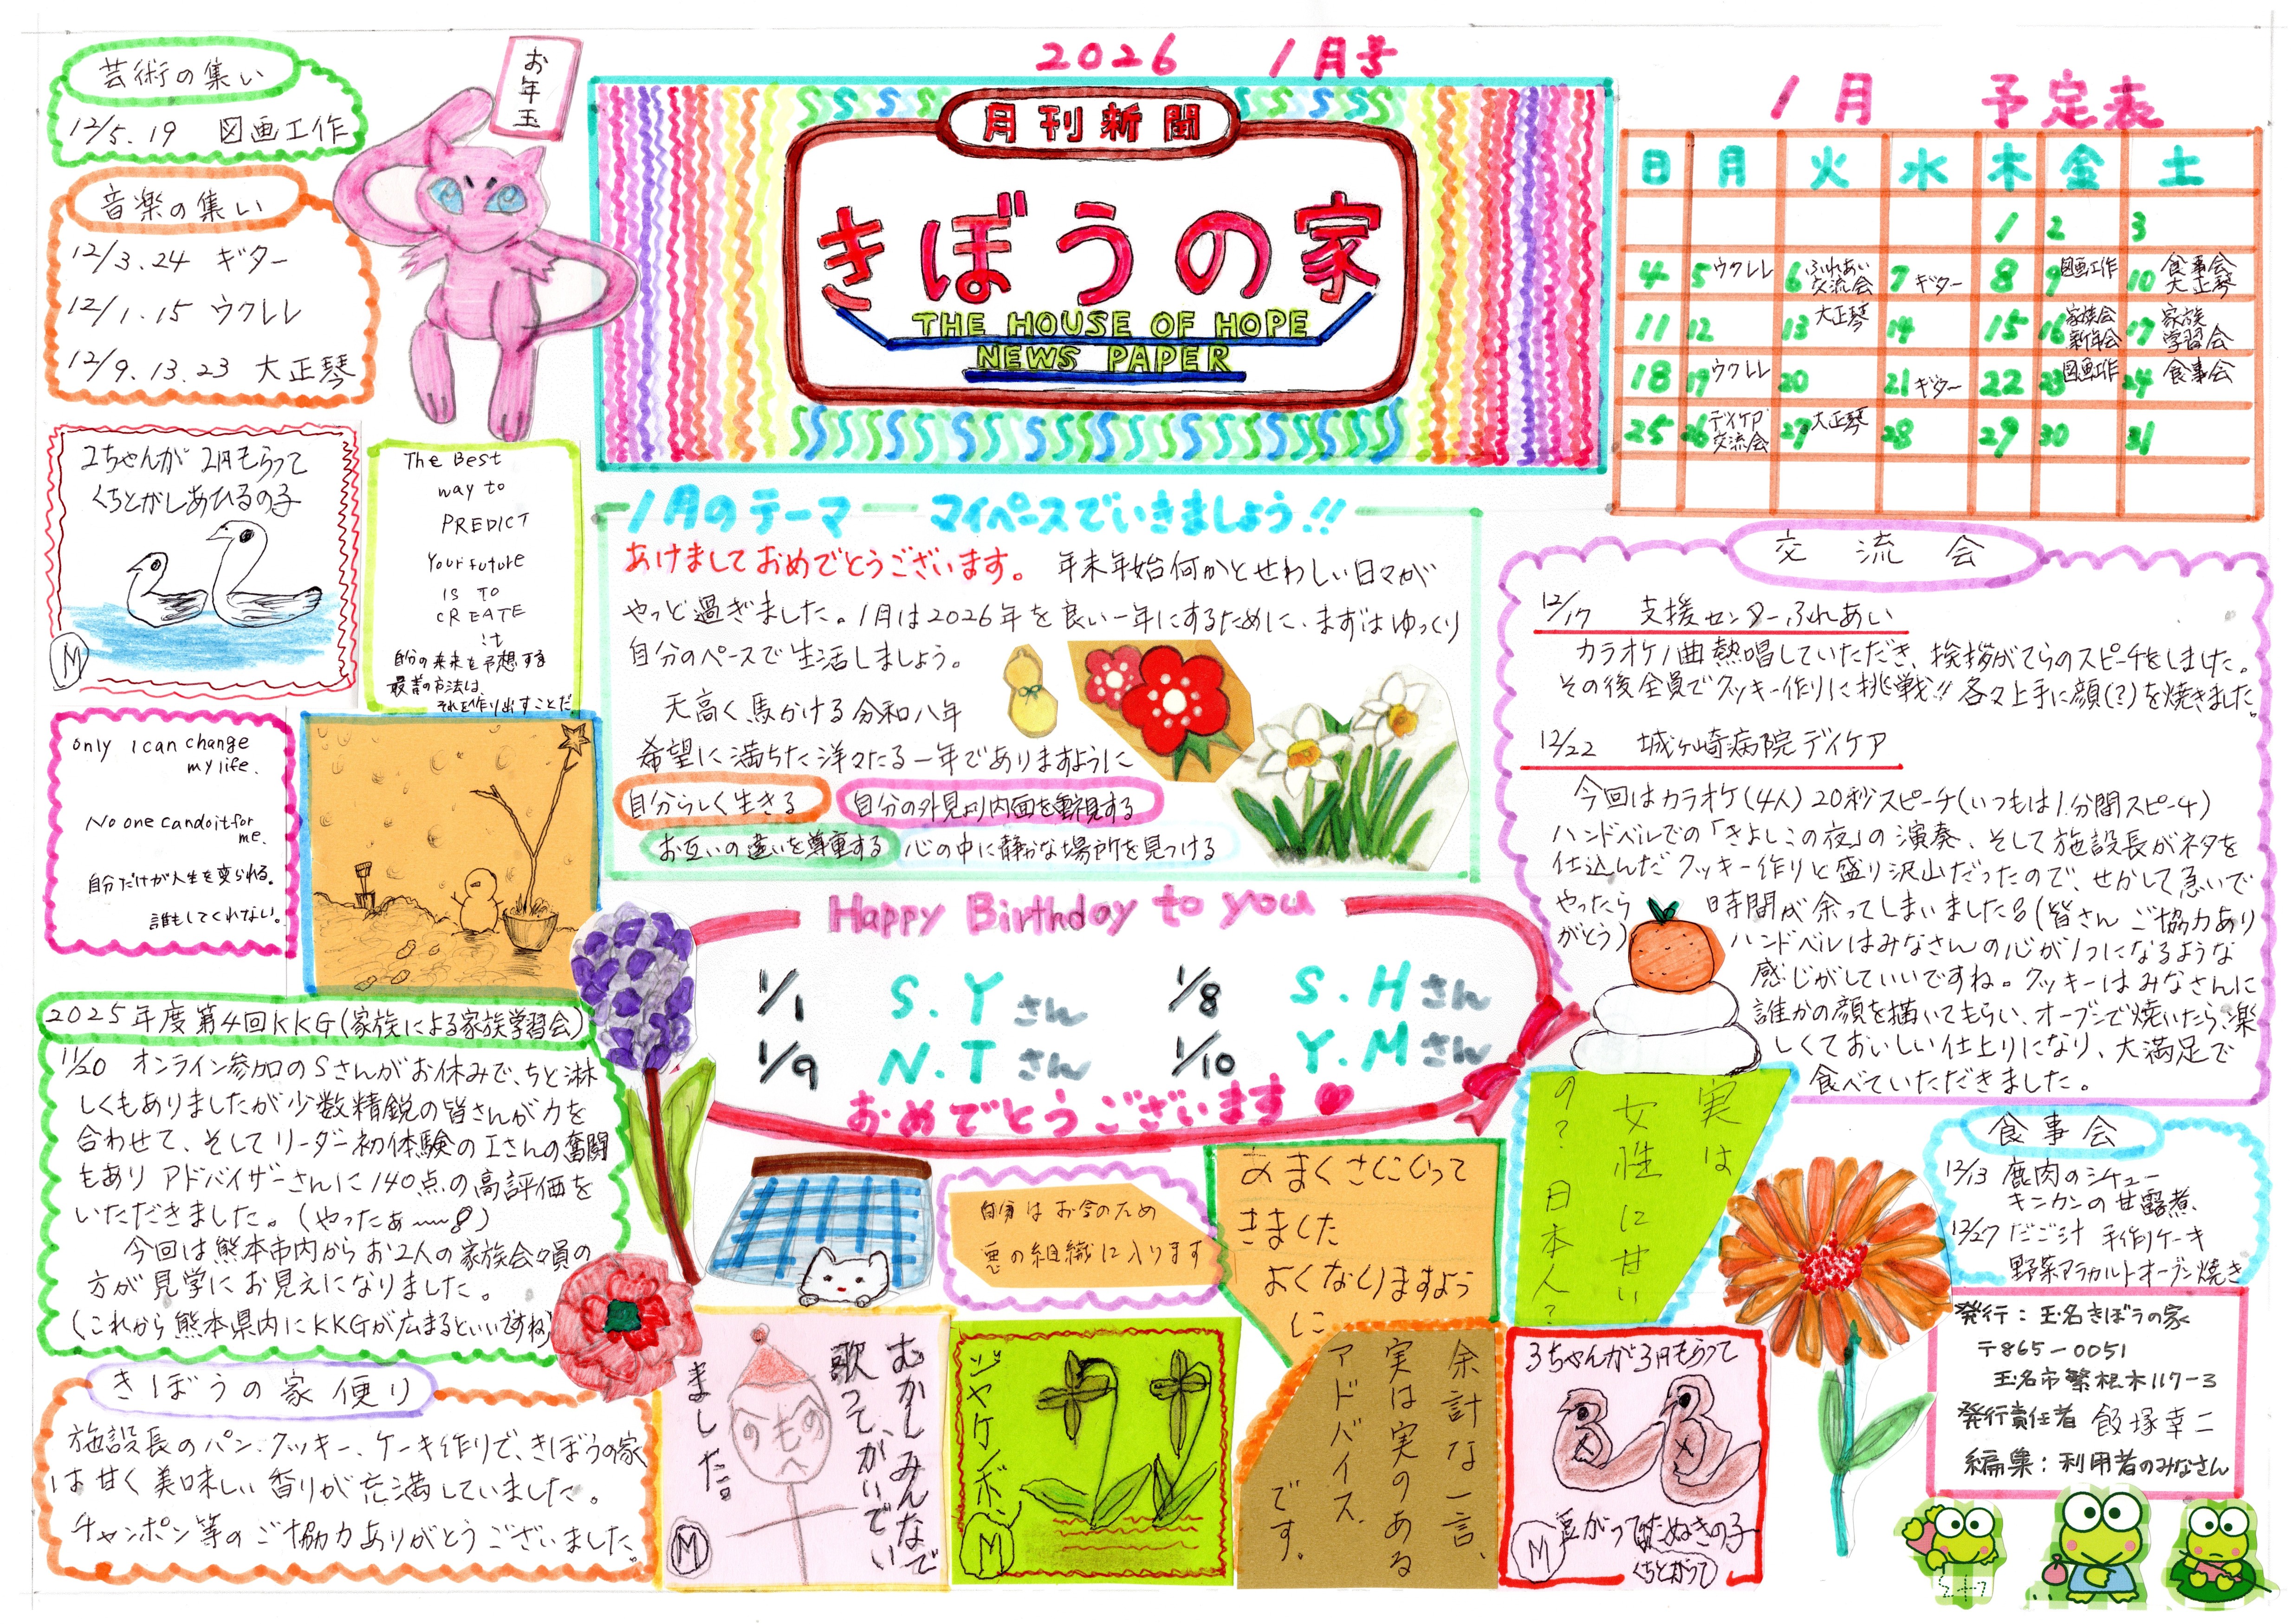 2026 1月号
月刊新聞
きぼうの家
THE HOUSE OF HOPE
NEWS PAPER
芸術の集い
12/5.19 図画工作
音楽の集い
12/3.24 ギター
12/1.15 ウクレレ
12/9.13.23 大正琴
お年玉
1月 予定表
日 月 火 水 木 金 土
1 2 3
4 5 ウクレレ 6 ふれあい交流会 7 ギター 8 9 図画工作 10 食事会 大正琴
11 12 13 大正琴 14 15 16 家族会 新年会 17 家族学習会
18 19 ウクレレ 20 21 ギター 22 23 図画工作 24 食事会
25 26 デイケア交流会 27 大正琴 28 29 30 31
2ちゃんが2円もらって
くちとがしあひるの子
M
The Best
way to
PREDICT
Your future
IS TO
CREATE
it
自分の未来を予想する
最善の方法は、
それを作り出すことだ
only I can change
my life.
No one can do it for
me.
自分だけが人生を変られる。
誰もしてくれない。
1月のテーマ マイペースでいきましょう!!
あけましておめでとうございます。 年末年始何かとせわしい日々が
やっと過ぎました。1月は2026年を良い一年にするために、まずはゆっくり
自分のペースで生活しましょう。
天高く馬かける令和八年
希望に満ちた洋々たる一年でありますように
自分らしく生きる 自分の外見より内面を重視する
お互いの違いを尊重する 心の中に静かな場所を見つける
交流会
12/17 支援センターふれあい
カラオケ1曲熱唱していただき、挨拶がてらのスピーチをしました。
その後全員でクッキー作りに挑戦!! 各々上手に顔(?)を焼きました。
12/22 城ヶ崎病院デイケア
今回はカラオケ(4人)20秒スピーチ(いつもは1分間スピーチ)
ハンドベルでの「きよしこの夜」の演奏、そして施設長がネタを
仕込んだクッキー作りと盛り沢山だったので、せかして急いで
やったら 時間が余ってしまいました(皆さんご協力あり
がとう) ハンドベルはみなさんの心が1つになるような
感じがしていいですね。クッキーはみなさんに
誰かの顔を描いてもらい、オーブンで焼いたら、楽
しくておいしい仕上りになり、大満足で
食べていただきました。
Happy Birthday to you
1/1 S.Yさん 1/8 S.Hさん
1/9 N.Tさん 1/10 Y.Mさん
おめでとうございます
2025年度第4回KKG(家族による家族学習会)
11/20 オンライン参加のSさんがお休みで、ちと淋
しくもありましたが少数精鋭の皆さんが力を
合わせて、そしてリーダー初体験のIさんの奮闘
もありアドバイザーさんに140点の高評価を
いただきました。(やったぁ〜〜)
今回は熊本市内からお2人の家族会々員の
方が見学にお見えになりました。
(これから熊本県内にKKGが広まるといいですね)
きぼうの家便り
施設長のパン、クッキー、ケーキ作りで、きぼうの家
は甘く美味しい香りが充満していました。
チャンポン等のご協力ありがとうございました。
自身はお金のため
悪の組織に入ります
あまくさにいって
きました
よくなりますよう
に
実は
女性に甘い
の?日本人?
むかしみんなで
歌って、かいでい
ました。
のものへ
M
ジャケンボン
M
余計な一言、
実は実のある
アドバイス
です。
3ちゃんが3円もらって
豆がってはたぬきの子
くちとがって
M
食事会
12/13 鹿肉のシチュー
キンカンの甘露煮
12/27 だご汁 手作りケーキ
野菜アラカルトオーブン焼き
発行:玉名きぼうの家
〒865-0051
玉名市繁根木117-3
発行責任者 飯塚幸二
編集:利用者のみなさん